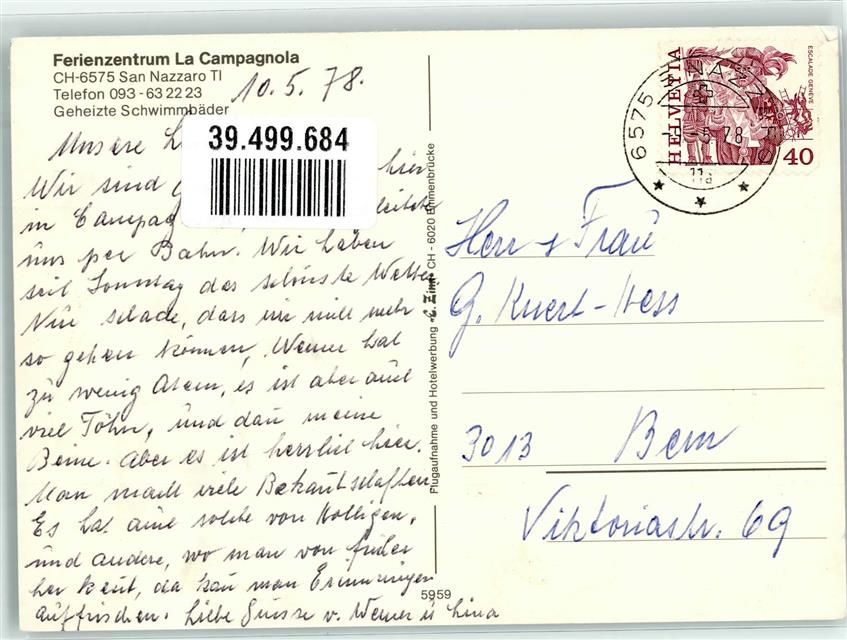 Ferienzentrum La Campagnola
CH-6575 San Nazzaro TI
Telefon 093 - 63 22 23
Geheizte Schwimmbäder
10.5.78.
39.499.684
Unsere L
Wir sind hier
in Campag
uns per Bahn. Wir haben
seit Sonntag das schönste Wetter
Nur schade, dass wir nicht mehr
so gehen können, Werner hat
zu wenig Atem, es ist aber auch
viel Föhn, und dan meine
Beine. Aber es ist herrlich hier.
Man macht viele Bekantschaften
Es hat eine solche von Holligen,
und andere, wo man von früher
her kent, da kan man Erinnerungen
auffrischen. Liebe Grüsse v. Werner u Lina
Flugaufnahme und Hotelwerbung C. Zinn CH - 6020 Emmenbrücke
5959
HELVETIA
ESCALADE GENÈVE
40
6575 S. NAZZARO
5.78
Herr + Frau
G. Kuert-Hess
3013 Bern
Viktoriastr. 69